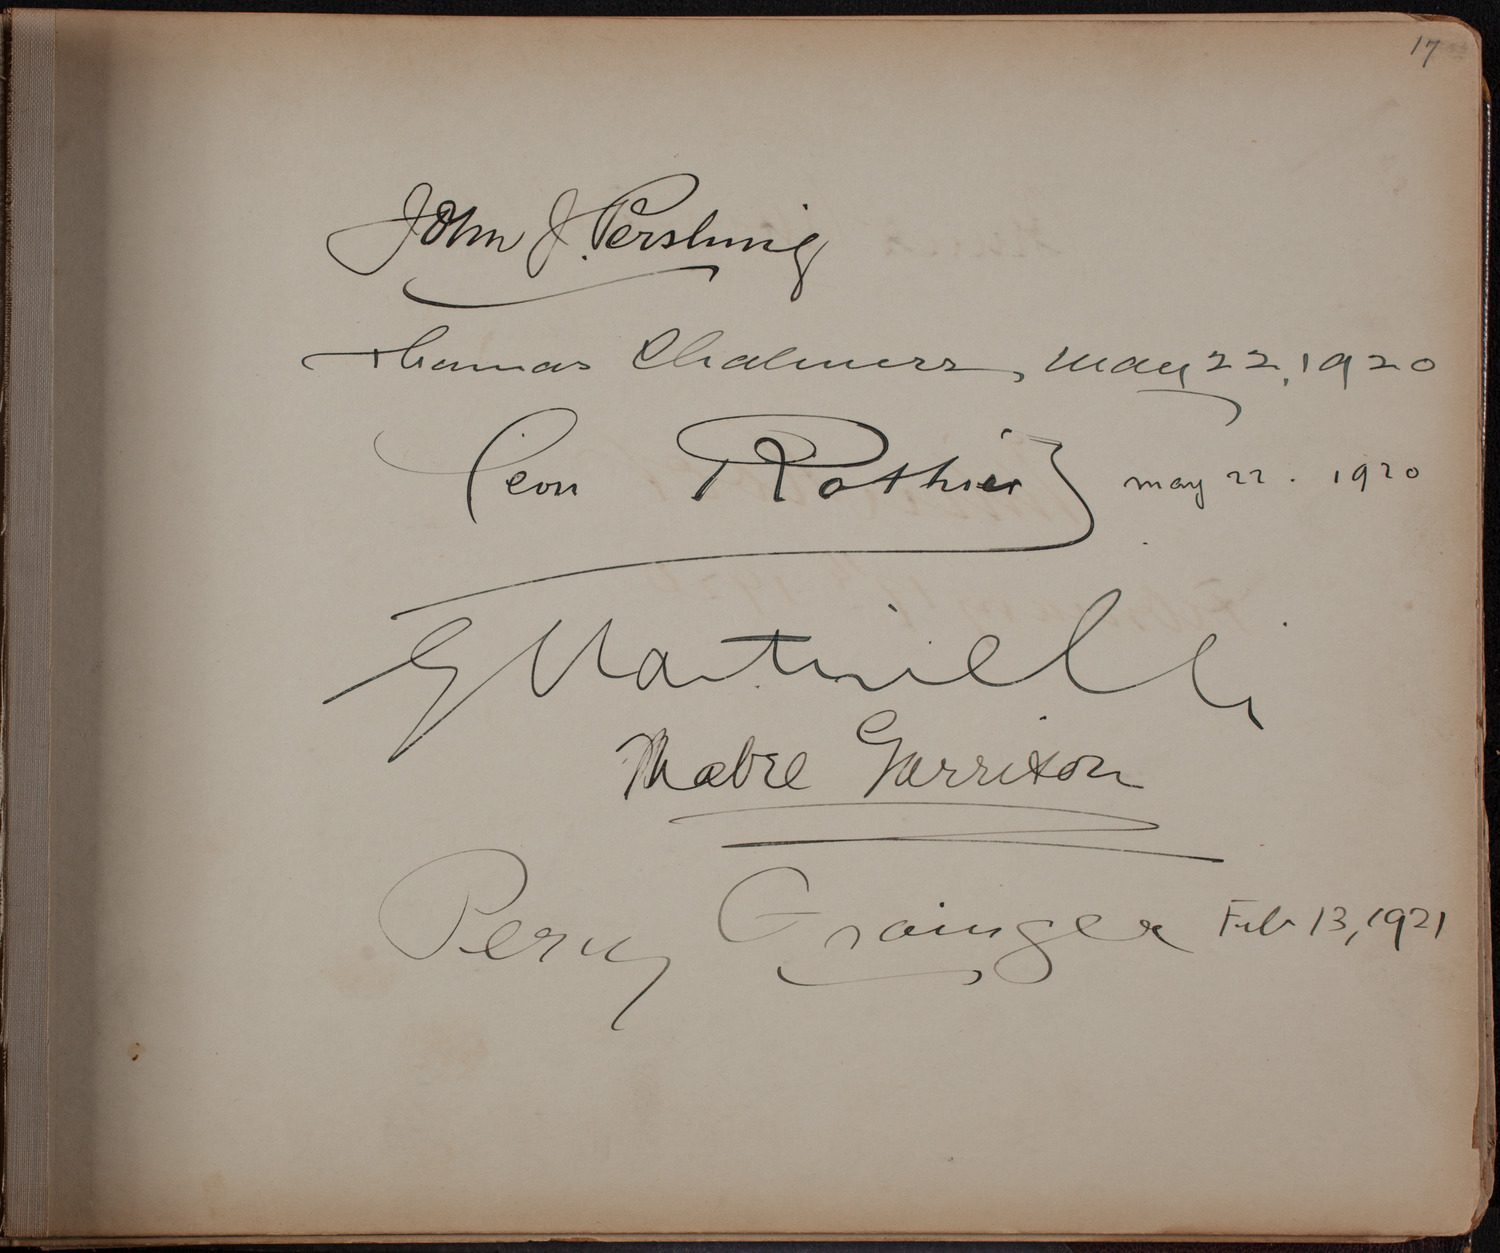 17
John J. Pershing
Thomas Chalmers, May 22, 1920
Léon Rothier May 22. 1920
G Martinelli
Mabel Garrison
Percy Grainger Feb 13, 1921